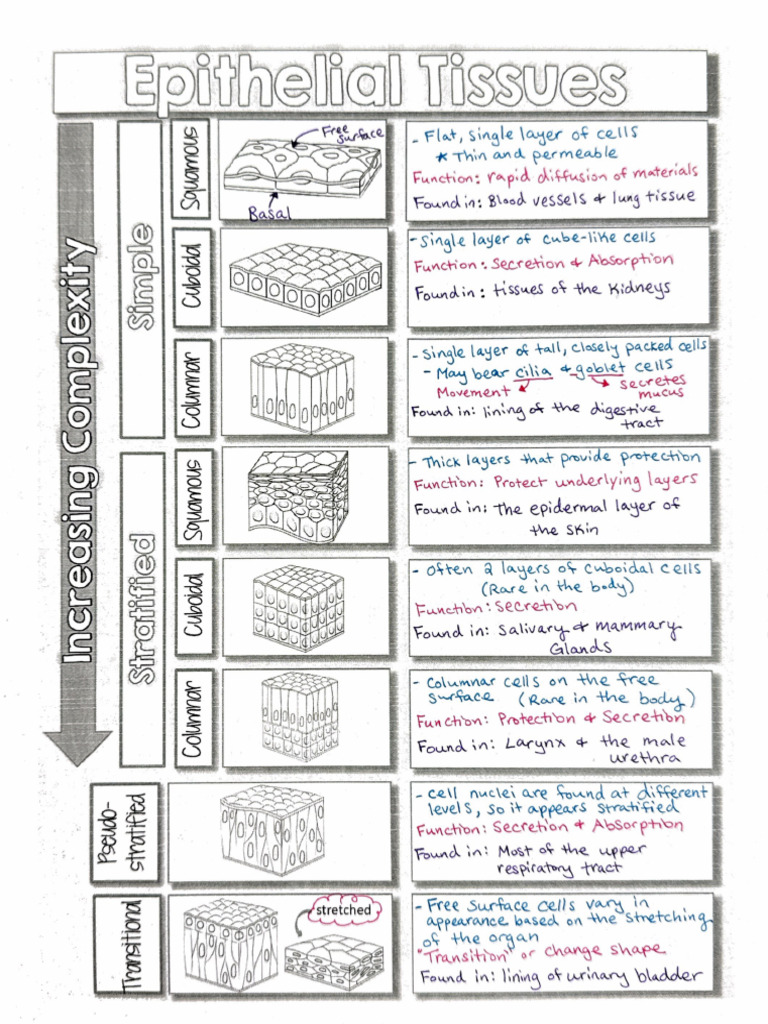 Epithelial Tissues
Increasing Complexity
Simple
Squamous
Free
surface
Basal
- Flat, single layer of cells
* Thin and permeable
Function: rapid diffusion of materials
Found in: Blood vessels & lung tissue
Cuboidal
- Single layer of cube-like cells
Function: Secretion & Absorption
Found in: tissues of the kidneys
Columnar
- Single layer of tall, closely packed cells
- May bear cilia & goblet cells
Movement
secretes
mucus
Found in: lining of the digestive
tract
Stratified
Squamous
- Thick layers that provide protection
Function: Protect underlying layers
Found in: The epidermal layer of
the skin
Cuboidal
- Often 2 layers of cuboidal cells
(Rare in the body)
Function: Secretion
Found in: Salivary & mammary
Glands
Columnar
- Columnar cells on the free
surface (Rare in the body)
Function: Protection & Secretion
Found in: Larynx & the male
urethra
Pseudo-
stratified
- cell nuclei are found at different
levels, so it appears stratified
Function: Secretion & Absorption
Found in: Most of the upper
respiratory tract
Transitional
stretched
- Free surface cells vary in
appearance based on the stretching
of the organ
"Transition" or change shape
Found in: lining of urinary bladder